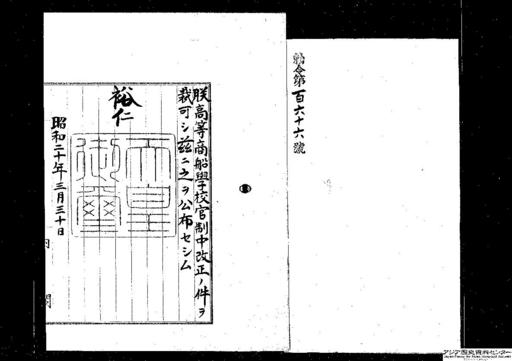 勅令第百六十六號
朕高等商船學校官制中改正ノ件ヲ
裁可シ茲ニ之ヲ公布セシム
裕仁
天皇
御璽
昭和二十年三月三十日
内閣
アジア歴史資料センター